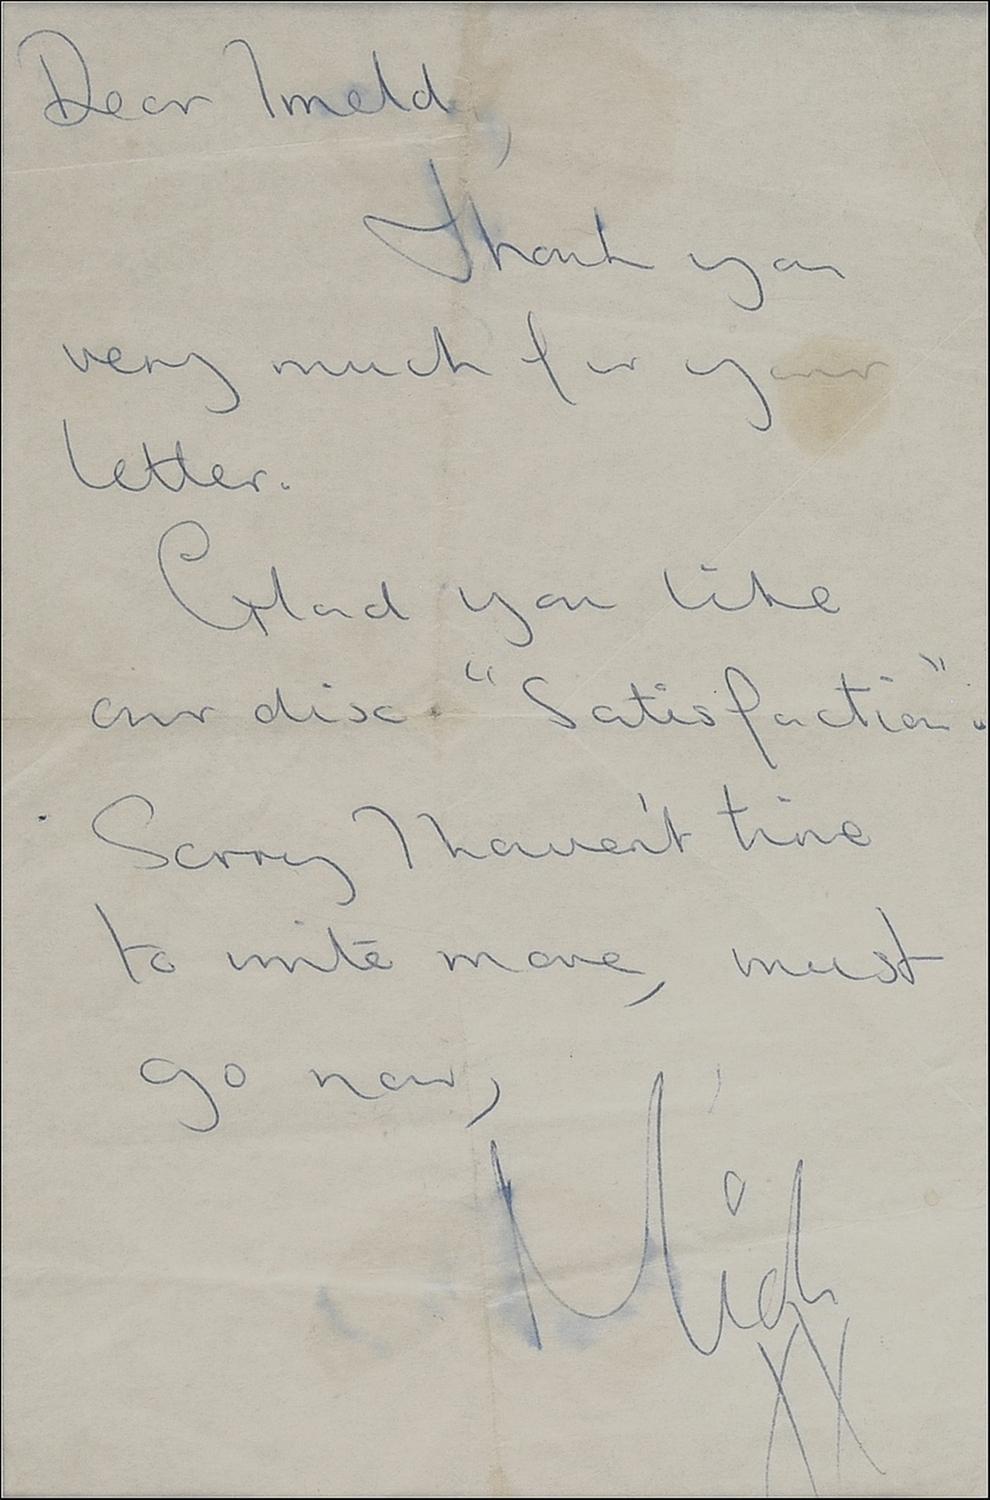 Dear Imeld,
Thank you
very much for your
letter.
Glad you like
our disc "Satisfaction".
Sorry I haven't time
to write more, must
go now,
Mick
XX